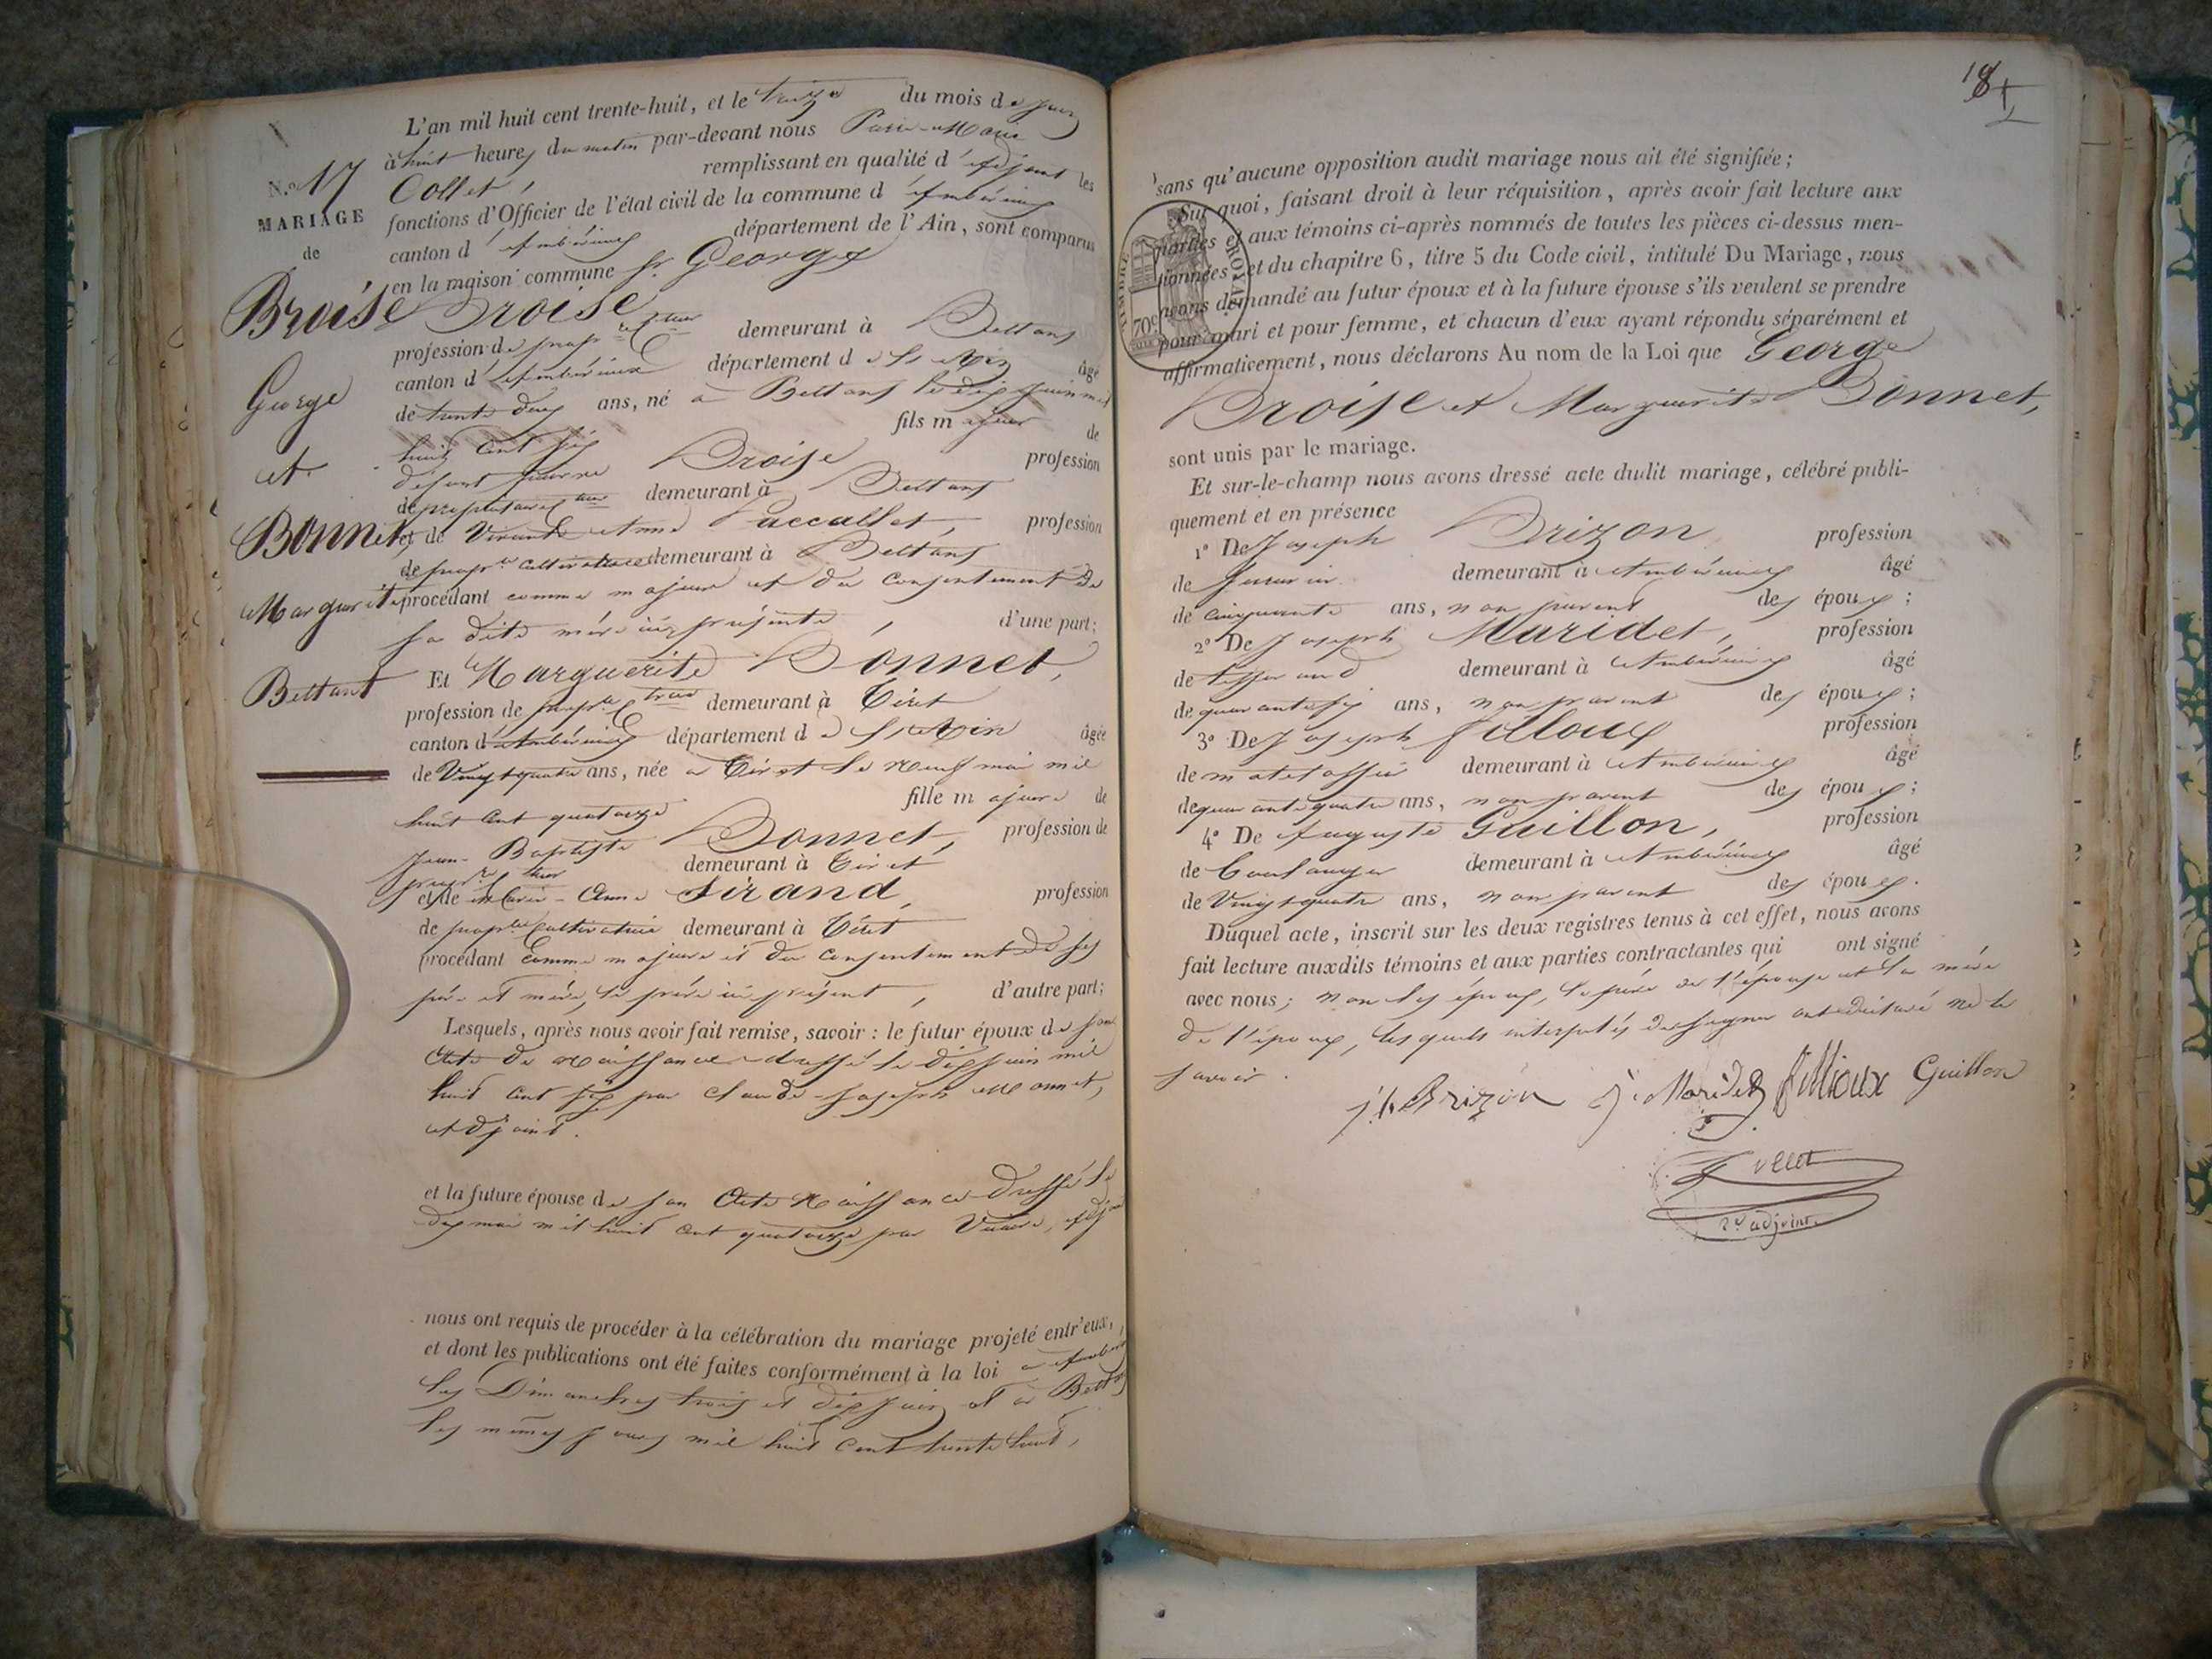 L'an mil huit cent trente-huit, et le treize du mois de juin
à huit heures du matin par-devant nous Pierre-Marie
Collet, remplissant en qualité d'adjoint les
fonctions d'Officier de l'état civil de la commune d'Ambérieux
canton d'Ambérieux département de l'Ain, sont comparus
en la maison commune Sr. George
Broise
profession de propre. cteur demeurant à Bettans
canton d'Ambérieux département de l'Ain âgé
de trente deux ans, né à Bettans le dix juin mil
huit cent six fils majeur de
défunt Broise profession
de propriétaire cteur demeurant à Bettans
et de Vivante Anne Paccallet, profession
de propre. cultivatrice demeurant à Bettans
procédant comme majeur et du consentement de
sa dite mère ici présente, d'une part;
Et Marguerite Bonnet,
profession de propre. ctrice demeurant à Tiret
canton d'Ambérieux département de l'Ain âgée
de Vingt quatre ans, née à Tiret le neuf mai mil
huit cent quatorze fille majeure de
Jean-Baptiste Bonnet, profession de
propre. cteur demeurant à Tiret
et de Marie-Anne Sirand, profession
de propre. Cultivatrice demeurant à Tiret
procédant comme majeure et du consentement de ses
père et mère, le père ici présent, d'autre part;
Lesquels, après nous avoir fait remise, savoir : le futur époux de son
Acte de naissance dressé le dix juin mil
huit cent six par Claude-Joseph Monnet,
adjoint.
et la future épouse de son Acte Naissance dressé le
dix mai mil huit cent quatorze par adjoint
nous ont requis de procéder à la célébration du mariage projeté entr'eux,
et dont les publications ont été faites conformément à la loi à
les Dimanches trois et dix juin et à
les mêmes jours mil huit cent trente huit,
N.o 17
MARIAGE
de
Broise
George
et
Bonnet,
Marguerite
Bettant
184
sans qu'aucune opposition audit mariage nous ait été signifiée;
Sur quoi, faisant droit à leur réquisition, après avoir fait lecture aux
parties et aux témoins ci-après nommés de toutes les pièces ci-dessus men-
tionnées et du chapitre 6, titre 5 du Code civil, intitulé Du Mariage, nous
avons demandé au futur époux et à la future épouse s'ils veulent se prendre
pour mari et pour femme, et chacun d'eux ayant répondu séparément et
affirmativement, nous déclarons Au nom de la Loi que George
Broise et Marguerite Bonnet,
sont unis par le mariage.
Et sur-le-champ nous avons dressé acte dudit mariage, célébré publi-
quement et en présence
1o De Joseph Brizon profession
de serrurier demeurant à Ambérieux âgé
de cinquante ans, non parent des époux;
2o De Joseph Maridet, profession
de tisserand demeurant à Ambérieux âgé
de quarante six ans, non parent des époux;
3o De Joseph fillioux profession
de matelassier demeurant à Ambérieux âgé
de quarante quatre ans, non parent des époux;
4o De Auguste Guillon, profession
de Boulanger demeurant à Ambérieux âgé
de Vingt quatre ans, non parent des époux.
Duquel acte, inscrit sur les deux registres tenus à cet effet, nous avons
fait lecture auxdits témoins et aux parties contractantes qui ont signé
avec nous; non les époux, le père de l'épouse et la mère
de l'époux, lesquels interpelés de signer ont déclaré ne le
savoir.
Jh. Brizon J. Maridet fillioux Guillon
Collet
2e adjoint
TIMBRE ROYAL
70c